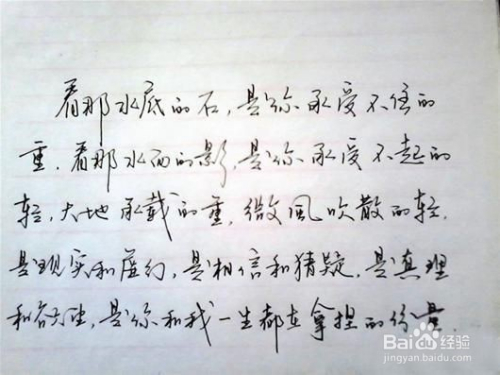 看那水底的石，是你承受不住的
重，看那水面的影，是你承受不起的
轻，大地承载的重，微风吹散的轻，
是现实和虚幻，是相信和猜疑，是真理
和谷生，是你和我一生都在拿捏的份量。
Baidu经验
jingyan.baidu.com